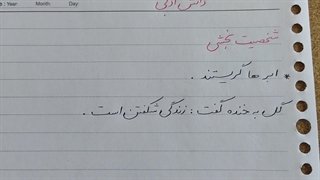 Year: Month: Day:
دانش ادبی
شخصیت بخشی
* ابر ها گریستند .
گل به خنده گفت : زندگی شکفتن است .